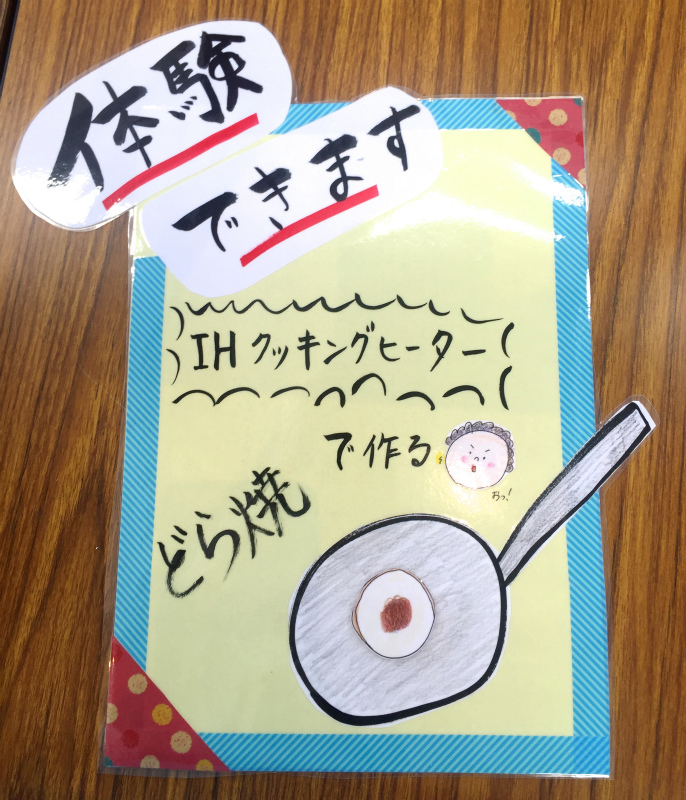 体験
できます
IHクッキングヒーター
で作る
おっ!
どら焼